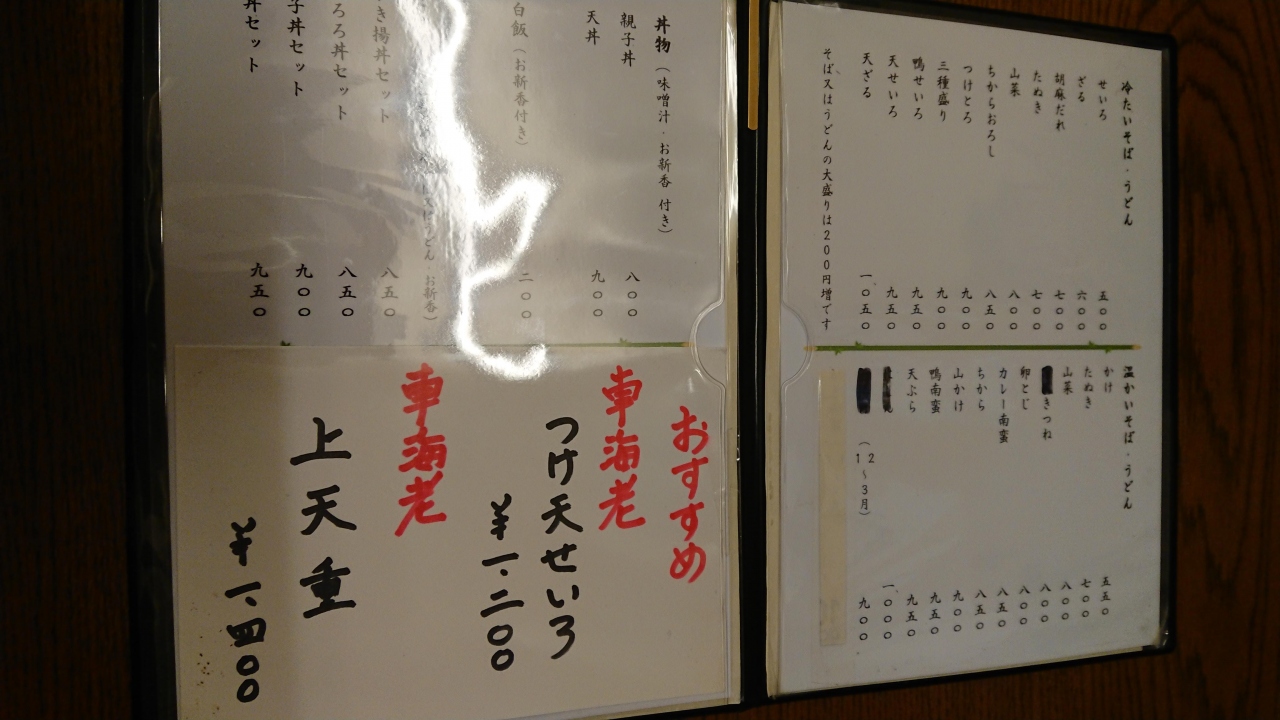 冷たいそば・うどん
せいろ 五〇〇
ざる 六〇〇
胡麻だれ 七〇〇
たぬき 七〇〇
山菜 八〇〇
ちからおろし 八五〇
つけとろ 九〇〇
三種盛り 九〇〇
鴨せいろ 九五〇
天せいろ 九五〇
天ざる 一〇五〇
そば又はうどんの大盛りは200円増です
温かいそば・うどん
かけ 五五〇
たぬき 七〇〇
山菜 八〇〇
きつね 八〇〇
卵とじ 八〇〇
カレー南蛮 八五〇
ちから 八五〇
山かけ 九〇〇
鴨南蛮 九五〇
天ぷら 九五〇
一〇〇〇
(12~3月) 九〇〇
丼物(味噌汁・お新香 付き)
親子丼 八〇〇
天丼 九〇〇
白飯(お新香付き) 二〇〇
うどん・お新香)
き揚丼セット 八五〇
ろろ丼セット 八五〇
子丼セット 九〇〇
丼セット 九五〇
おすすめ
車海老
つけ天せいろ
¥一、二〇〇
車海老
上天重
¥一、四〇〇